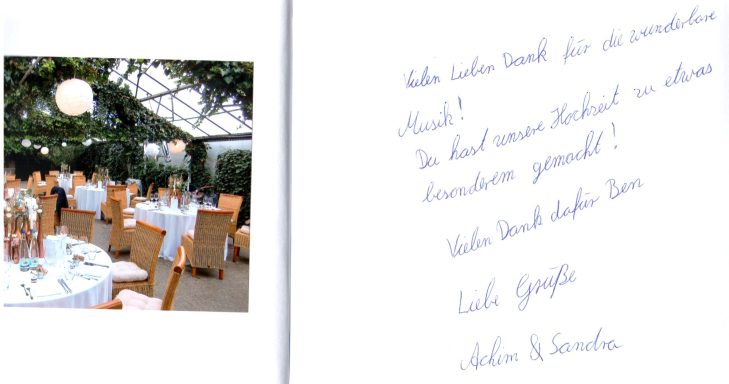 Vielen Lieben Dank für die wunderbare
Musik!
Du hast unsere Hochzeit zu etwas
besonderem gemacht!
Vielen Dank dafür Ben
Liebe Grüße
Achim & Sandra